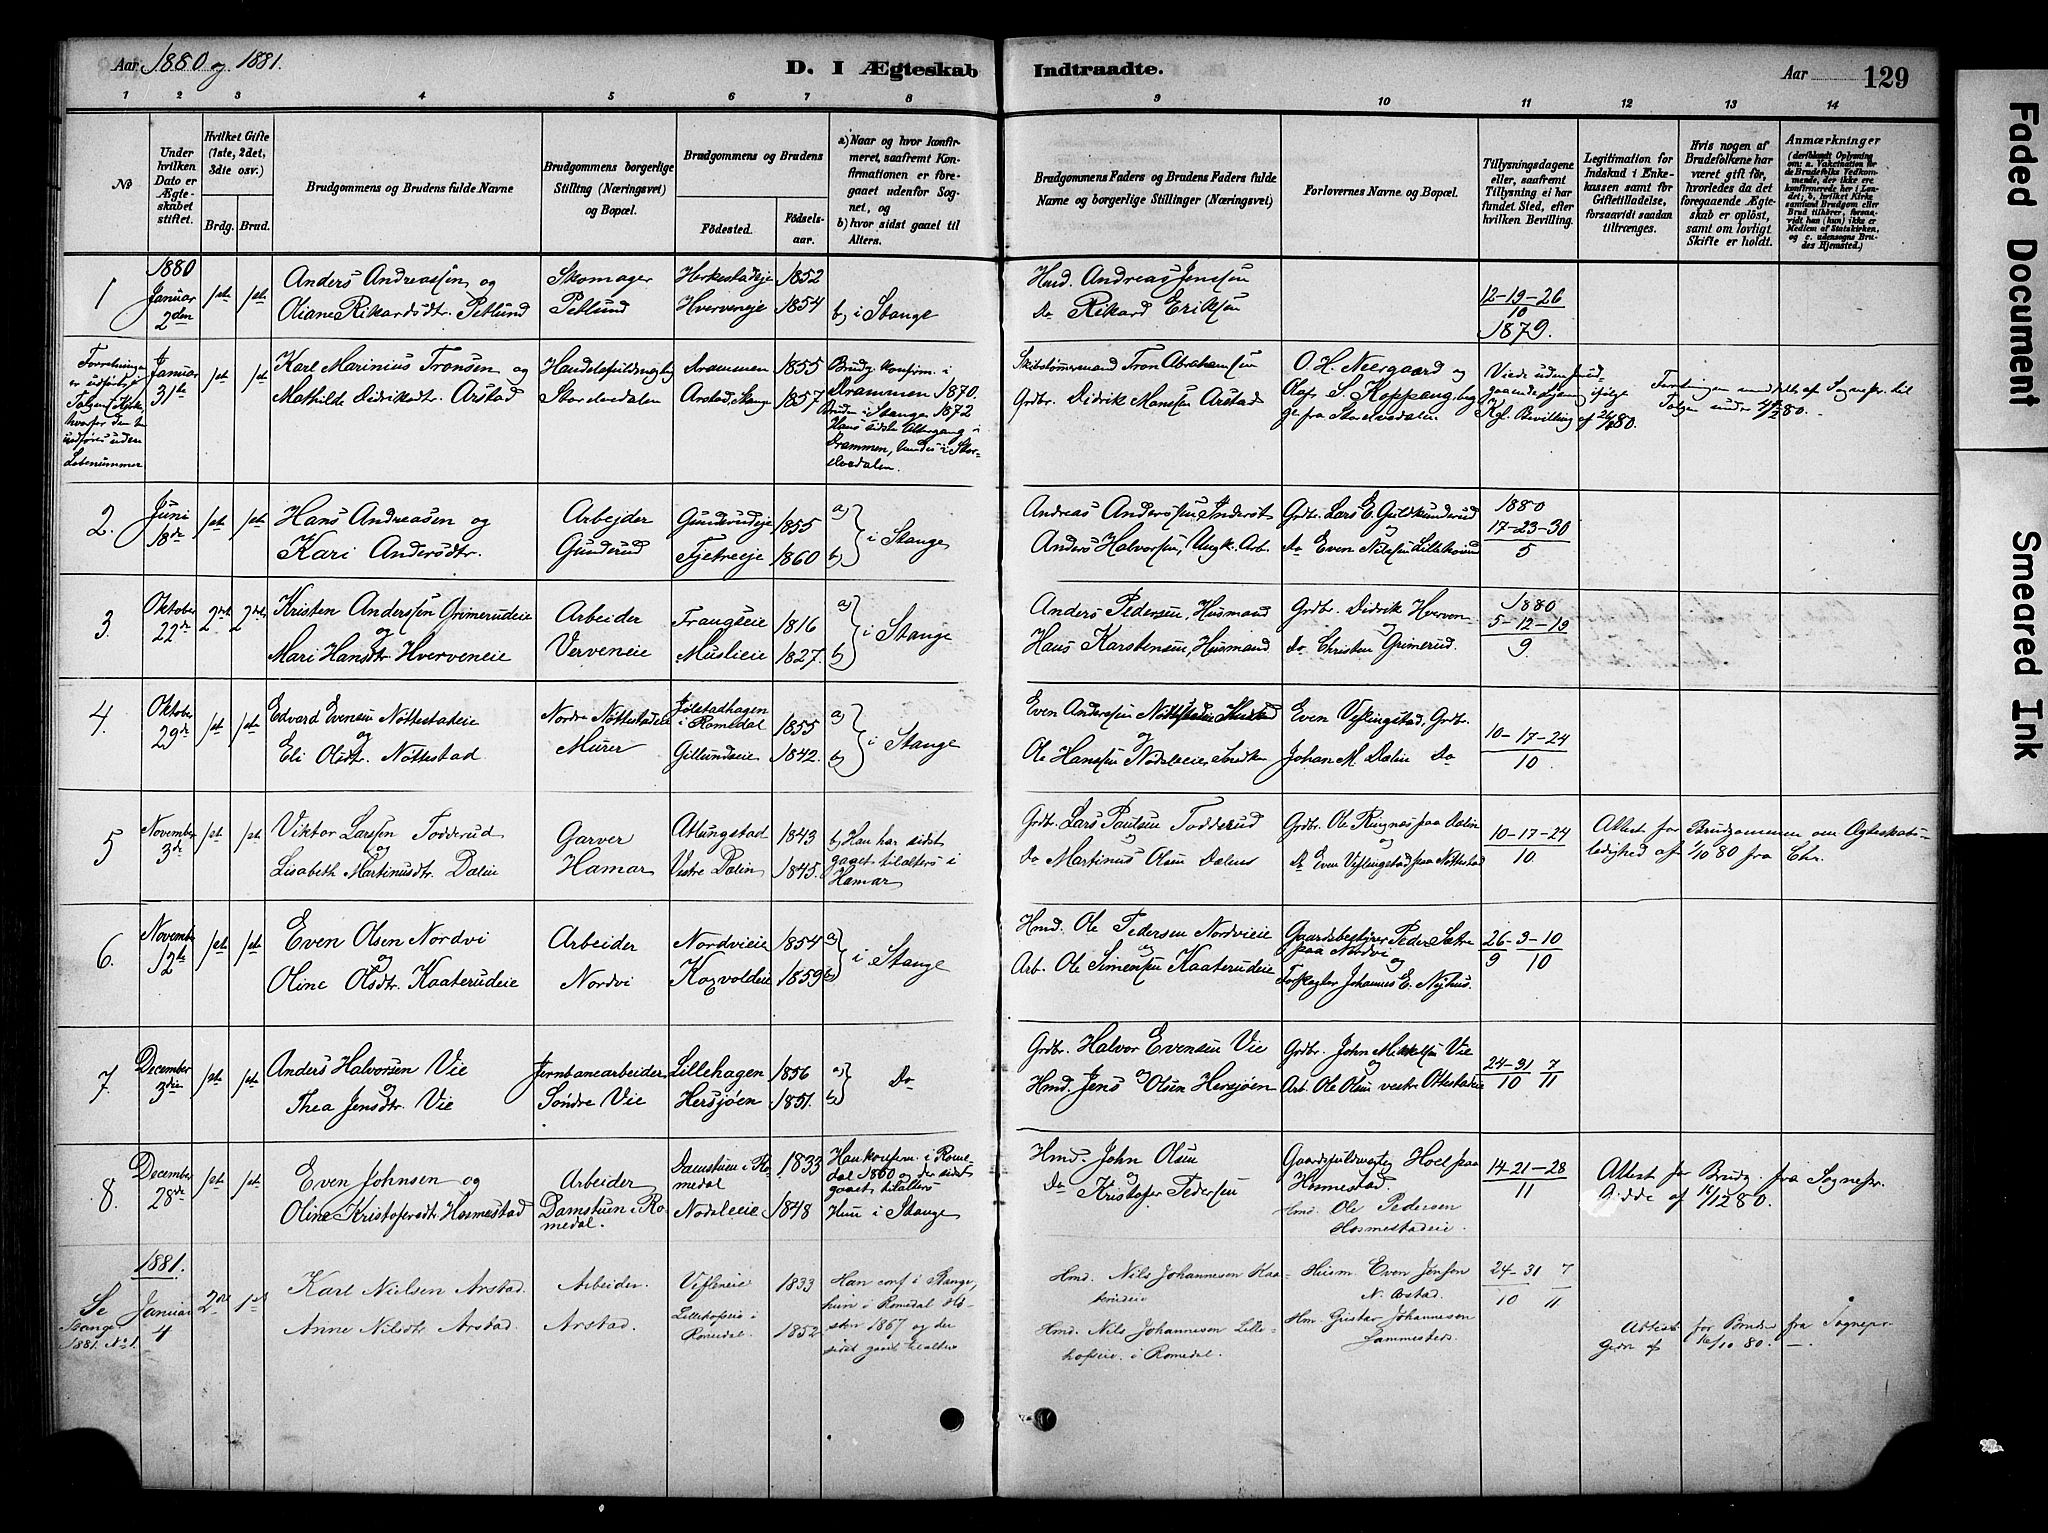 Aar 1880 og 1881.
D. I Ægteskab Indtraadte.
Aar 129
1 2 3 4 5 6 7 8 9 10 11 12 13 14
No
Under hvilken Dato er Ægteskabet stiftet.
Hvilket Gifte (1ste, 2det, 3die osv.)
Brdg. Brud.
Brudgommens og Brudens fulde Navne
Brudgommens borgerlige Stilling (Næringsvei) og Bopæl.
Brudgommens og Brudens
Födested. Födselsaar.
a) Naar og hvor konfirmeret, saafremt Konfirmationen er foregaaet udenfor Sognet, og
b) hvor sidst gaaet til Alters.
Brudgommens Faders og Brudens Faders fulde Navne og borgerlige Stillinger (Næringsvei)
Forlovernes Navne og Bopæl.
Tillysningsdagene eller, saafremt Tillysning ei har fundet Sted, efter hvilken Bevilling.
Legitimation for Indskud i Enkekassen samt for Giftetilladelse, forsaavidt saadan tiltrænges.
Hvis nogen af Brudefolkene har været gift för, hvorledes da det foregaaende Ægteskab er oplöst, samt om lovligt Skifte er holdt.
Anmærkninger
(deriblandt Oplysning om: a. Vakcination for de Brudefolks Vedkommende, der ikke ere konfirmerede her i Landet; b. hvilket Kirkesamfund Brudgom eller Brud tilhörer, forsaavidt han (hun) ikke er Medlem af Statskirken, og c. udensogns Brudes Hjemsted.)
1 1880 Januar 2den 1ste 1ste Anders Andreassen og Skomager Herkestadeje 1852 Hmd. Andreas Jenssen 12-19-26
Oliane Rikardsdtr. Petlund Petlund Hverveneje 1854 b) i Stange do Rikard Eriksen 10 1879.
Forretningen er udført i Tolgens Kirke, hvorfor den er indført uden Løbenummer
Januar 31te 1ste 1ste Karl Marinius Tronsen og Handelsfuldmægtig Drammen 1855 Brudg. konfirm. i Drammen 1870.
Mathilde Didriksdtr. Arstad Storelvedalen Arstad, Stange 1857 Bruden i Stange 1872
Hans sidste Altergang i Drammen, hendes i Storelvedalen.
Skibstømmermand Tron Abrahamsen O. H. Neergaard og Viede uden forudgaaende Lysning ifølge
Grdbr. Didrik Hansen Arstad Olaf S. Koppang begge fra Storelvedalen Kgl. Bevilling af 24/1 80.
2. Juni 18de 1ste 1ste Hans Andreasen og Arbejder Gunderudeje 1855 a)
Kari Andersdtr. Gunderud Tjetreeje 1860 b) i Stange
Andreas Andersen, Inderst Grdbr. Lars E. Guldkunderud 1880 17-23-30
Anders Halvorsen, Ungk. Arb. do Even Nilssen Lillehovind 5
3. Oktober 22de 2det 2det Kristen Anderssen Grimerudeie Arbeider Frangseie 1816 a)
og
Mari Hansdtr Hverveneie Verveneie Muslieie 1827. b) i Stange
Anders Pedersen, Husmand Grdbr. Didrik Hverven 1880 5-12-19
Hans Karstensen, Husmand do Christen Grimerud. 9
4. Oktober 29de 1ste 1ste Edvard Evensen Nöttestadeie Nordre Nöttestadeie Jölstadhagen i Romedal 1855 a)
og
Eli Olsdtr. Nöttestad Murer Gillundseie 1842. b) i Stange
Even Andersen Nöttestadeie Even Veflingstad, Grdbr. 10-17-24
Ole Hanssen Nödsleeie Snedker Johan M. Dalin do 10
5 November 3de 1ste 1ste Viktor Larssen Todderud Garver Atlungstad 1843 b) Han har sidst
og
Lisabeth Martinusdtr. Dalin Hamar Vestre Dalin 1845. gaaet tilalters i Hamar
Grdbr. Lars Paulsen Todderud Grdbr. Ole Ringnæs paa Dalin 10-17-24
do Martinus Olsen Dalens do Even Veflingstad paa Nöttestad 10
Attest for Brudgommen om Ægteskabsledighed af 1/10 80 fra Chr.
6. November 12te 1ste 1ste Even Olsen Nordvi Arbeider Nordvieie 1854 a)
og
Oline Olsdtr. Kaaterudeie Nordvi Korvoldeie 1859 b) i Stange
Hmd. Ole Pedersen Nordvieie Gaardsbestyrer Peder Sætre paa Nordvi og 26-3-10
Arb. Ole Simensen Kaaterudeie Forpagter Johannes E. Nyhus. 9 10
7. December 3die 1ste 1ste Anders Halvorsen Vie Jernbanearbeider Lillehagen 1856 a)
og
Thea Jensdtr. Vie Söndre Vie Hersjöen 1851. b) Do
Grdbr. Halvor Evensen Vie Grdbr. John Mikkelsen Vie 24-31 7
Hmd. Jens Olsen Hersjöen Arb. Ole Olsen vestre Ottestadeie 10 11
8. December 28de 1ste 1ste Even Johnsen og Arbeider Damstuen i Romedal 1833 Han konfirm. i Romedal 1860 og der sidst gaaet tilalters
Oline Kristofersdtr. Hosmestad Damstuen i Romedal. Nödsleeie 1848 Hun i Stange
Hmd. John Olsen Gaardsfuldmægtig Hoel paa Hosmestad. 14-21-28
og
do Kristofer Pedersen Hmd. Ole Pedersen Hosmestadeie. 11
Attest for Brudg. fra Sognepr. Gidde af 14/12 80.
Se Stange 1881. No 1. 1881. Januar 4 2det 1ste Karl Nielsen Arstad. Arbeider. Vefleneie 1833 Han conf. i Stange,
Anne Nilsdtr Arstad. Arstad. Lillehofseie i Romedal. 1852. hun i Romedal Høsten 1867 og der sidst gaaet tilalters
Hmd. Nils Johannesen Kaaterudeie Husm. Even Jensen N. Arstad. 24-31 7
Hmd. Nils Johannesen Lillehofseie i Romedal. Hm. Gustav Johannesen Sammesteds. 10 11
Attest for Bruden fra Sognepr. Gidde af 16/10 80.
Faded Document
Smeared Ink